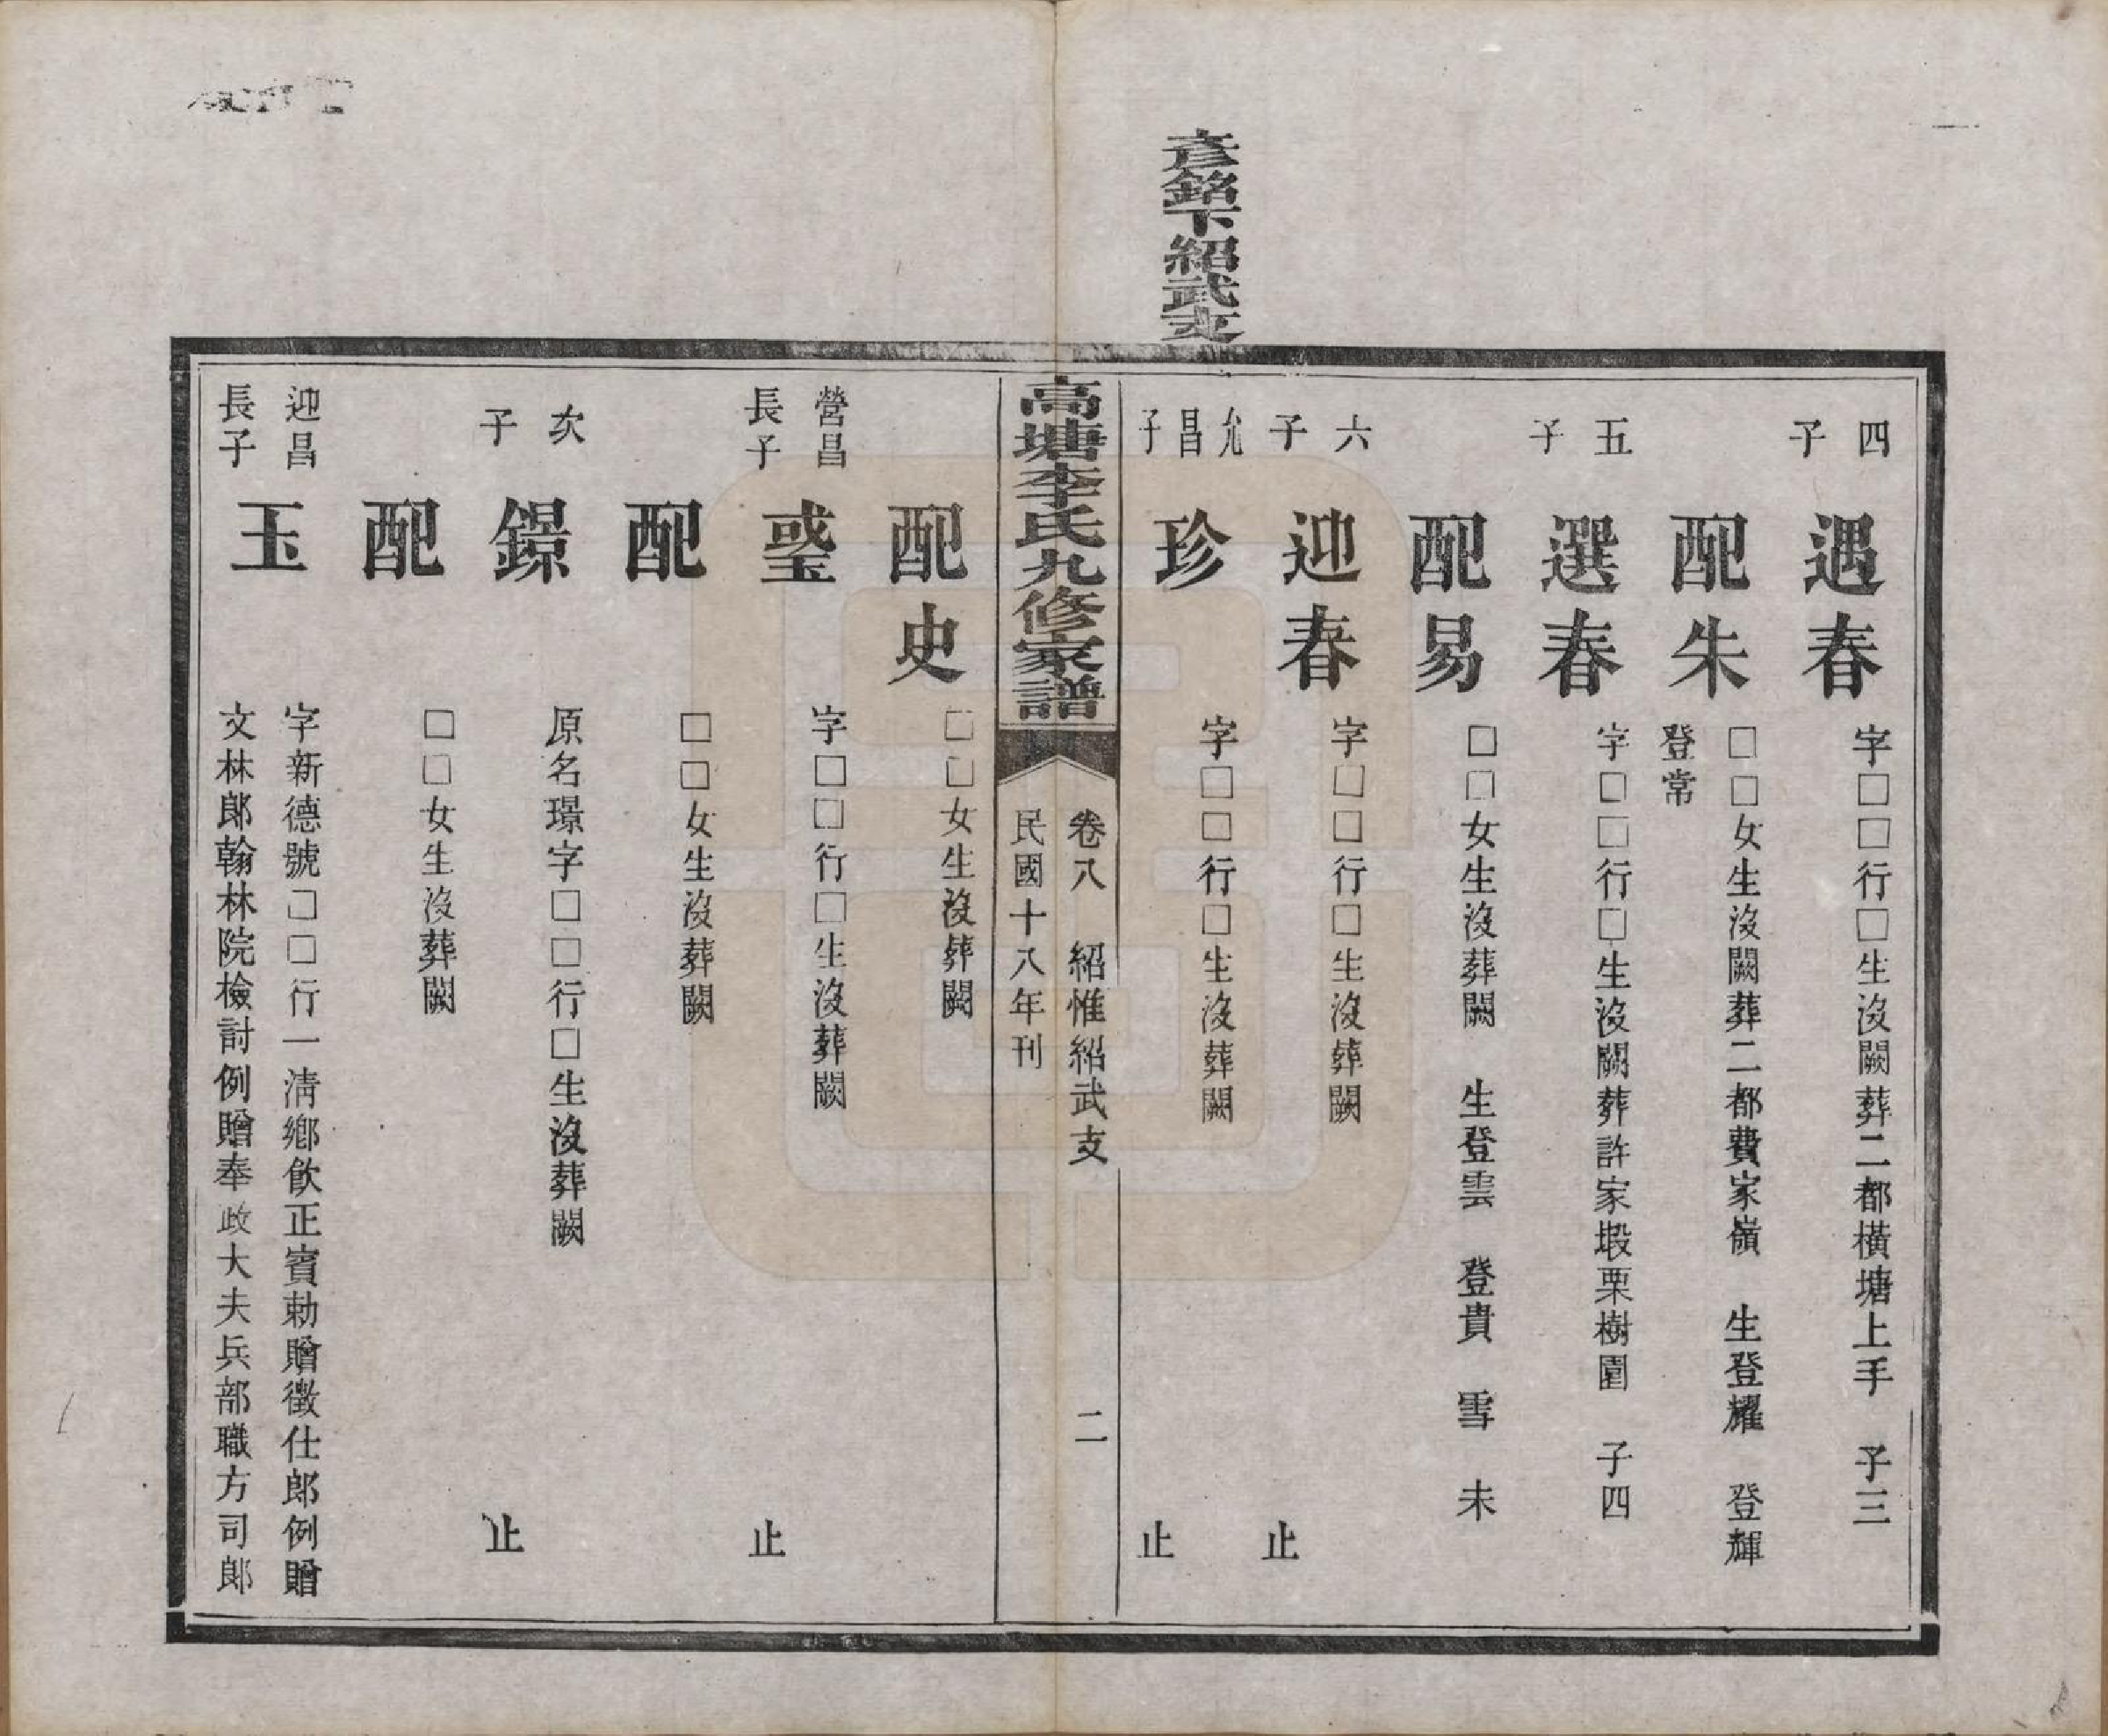 彥銘下紹武支
四子
遇春
字□□行□生沒闕葬二都橫塘上手 子三
配朱
□□女生沒闕葬二都費家嶺 生登耀 登輝
登常
五子
選春
字□□行□生沒闕葬許家塅栗樹園 子四
配易
□□女生沒葬闕 生登雲 登貴 雪 未
六子
迎春
字□□行□生沒葬闕
止
允昌子
珍
字□□行□生沒葬闕
止
高塘李氏九修家譜
卷八 紹惟紹武支 二
民國十八年刊
配史
□□女生沒葬闕
營昌長子
字□□行□生沒葬闕
止
配
□□女生沒葬闕
次子
鐛
原名璟字□□行□生沒葬闕
止
配
□□女生沒葬闕
迎昌長子
玉
字新德號□□行一清鄉飲正賓勅贈徵仕郎例贈
文林郎翰林院檢討例贈奉政大夫兵部職方司郎